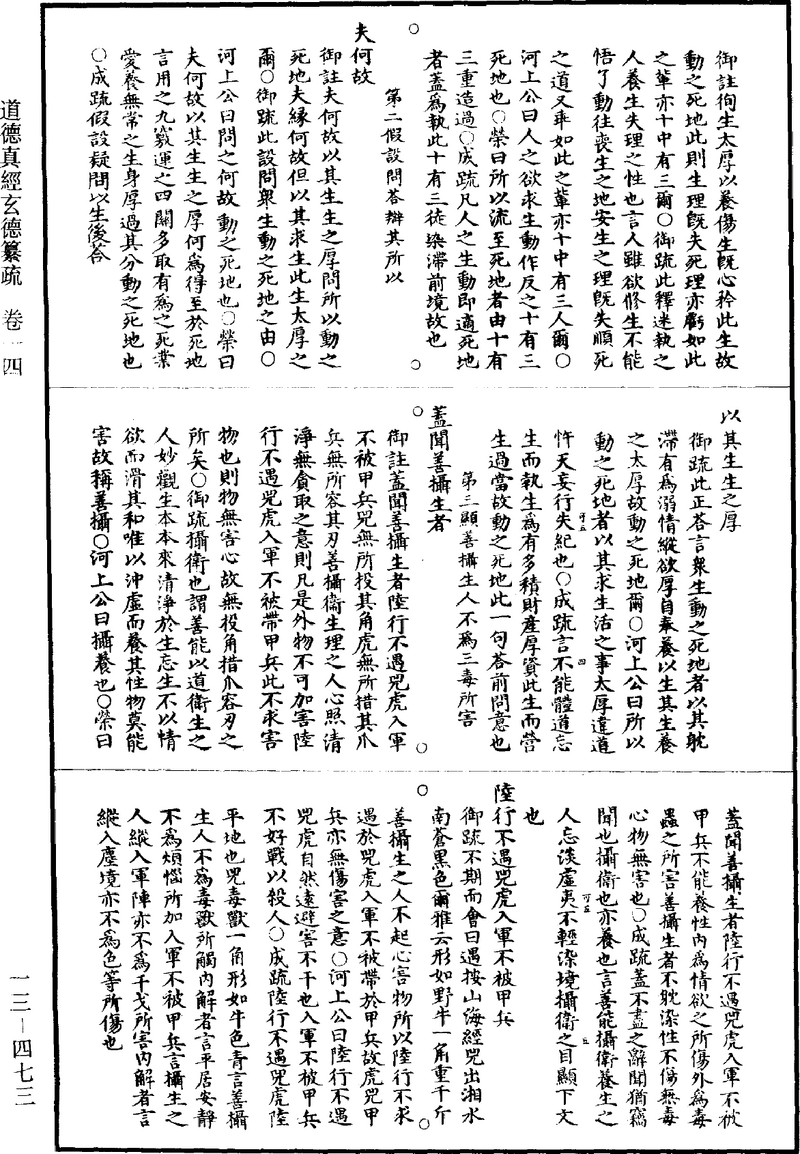 御註徇生太厚以養傷生旣心矜此生故
動之死地此則生理旣失死理亦虧如此
之軰亦十中有三爾○御疏此釋迷執之
人養生失理之性也言人雖欲修生不能
悟了動往喪生之地安生之理旣失順死
之道又乖如此之軰亦十中有三人爾○
河上公曰人之欲求生動作反之十有三
死地也○榮曰所以流至死地者由十有
三重造過○成疏凡人之生動即適死地
者蓋爲執此十有三徒染滯前境故也
第二假設問答辯其所以
夫何故
御註夫何故以其生生之厚問所以動之
死地夫縁何故但以其求生此生太厚之
爾○御疏此設問衆生動之死地之由○
河上公曰問之何故動之死地也○榮曰
夫何故以其生生之厚何爲得至於死地
言用之九竅運之四關多取有爲之死業
愛養無常之生身厚過其分動之死地也
○成疏假設疑問以生後答
以其生生之厚
御疏此正答言衆生動之死地者以其躭
滯有爲溺情縱欲厚自奉養以生其生養
之太厚故動之死地爾○河上公曰所以
動之死地者以其求生活之事太厚違道
忤天妄行失紀也○成疏言不能體道忘
生而執生爲有多積財產厚資此生而營
生過當故動之死地此一句答前問意也
第三顯善攝生人不爲三毒所害
蓋聞善攝生者
御註蓋聞善攝生者陸行不遇兕虎入軍
不被甲兵兕無所投其角虎無所措其爪
兵無所容其刃善攝衞生理之人心照清
淨無貪取之意則凡是外物不可加害陸
行不遇兕虎入軍不被帶甲兵此不求害
物也則物無害心故無投角措爪容刃之
所矣○御疏攝衛也謂善能以道衞生之
人妙觀生本本來清淨於生忘生不以情
欲而滑其和唯以沖虛而養其性物莫能
害故稱善攝○河上公曰攝養也○榮曰
蓋聞善攝生者陸行不遇兕虎入軍不被
甲兵不能養性內爲情欲之所傷外爲毒
蟲之所害善攝生者不躭染性不傷無毒
心物無害也○成疏蓋不盡之辭聞猶竊
聞也攝衛也亦養也言善能攝衛養生之
人忘淡虛夷不輕染境攝衞之目顯下文
也
陸行不遇兕虎入軍不被甲兵
御疏不期而會曰遇按山海經兕出湘水
南蒼黑色爾雅云形如野牛一角重千斤
善攝生之人不起心害物所以陸行不求
遇於兕虎入軍不被帶於甲兵故虎兕甲
兵亦無傷害之意○河上公曰陸行不遇
兕虎自然遠避害不干也入軍不被甲兵
不好戰以殺人○成疏陸行不遇兕虎陸
平地也兕毒獸一角形如牛色青言善攝
生人不爲毒獸所觸內解者言平居安靜
不爲煩惱所加入軍不被甲兵言攝生之
人縱入軍陣亦不爲干戈所害內解者言
縱入塵境亦不爲色等所傷也
道德真經玄德纂疏　卷一四
一三－四七三